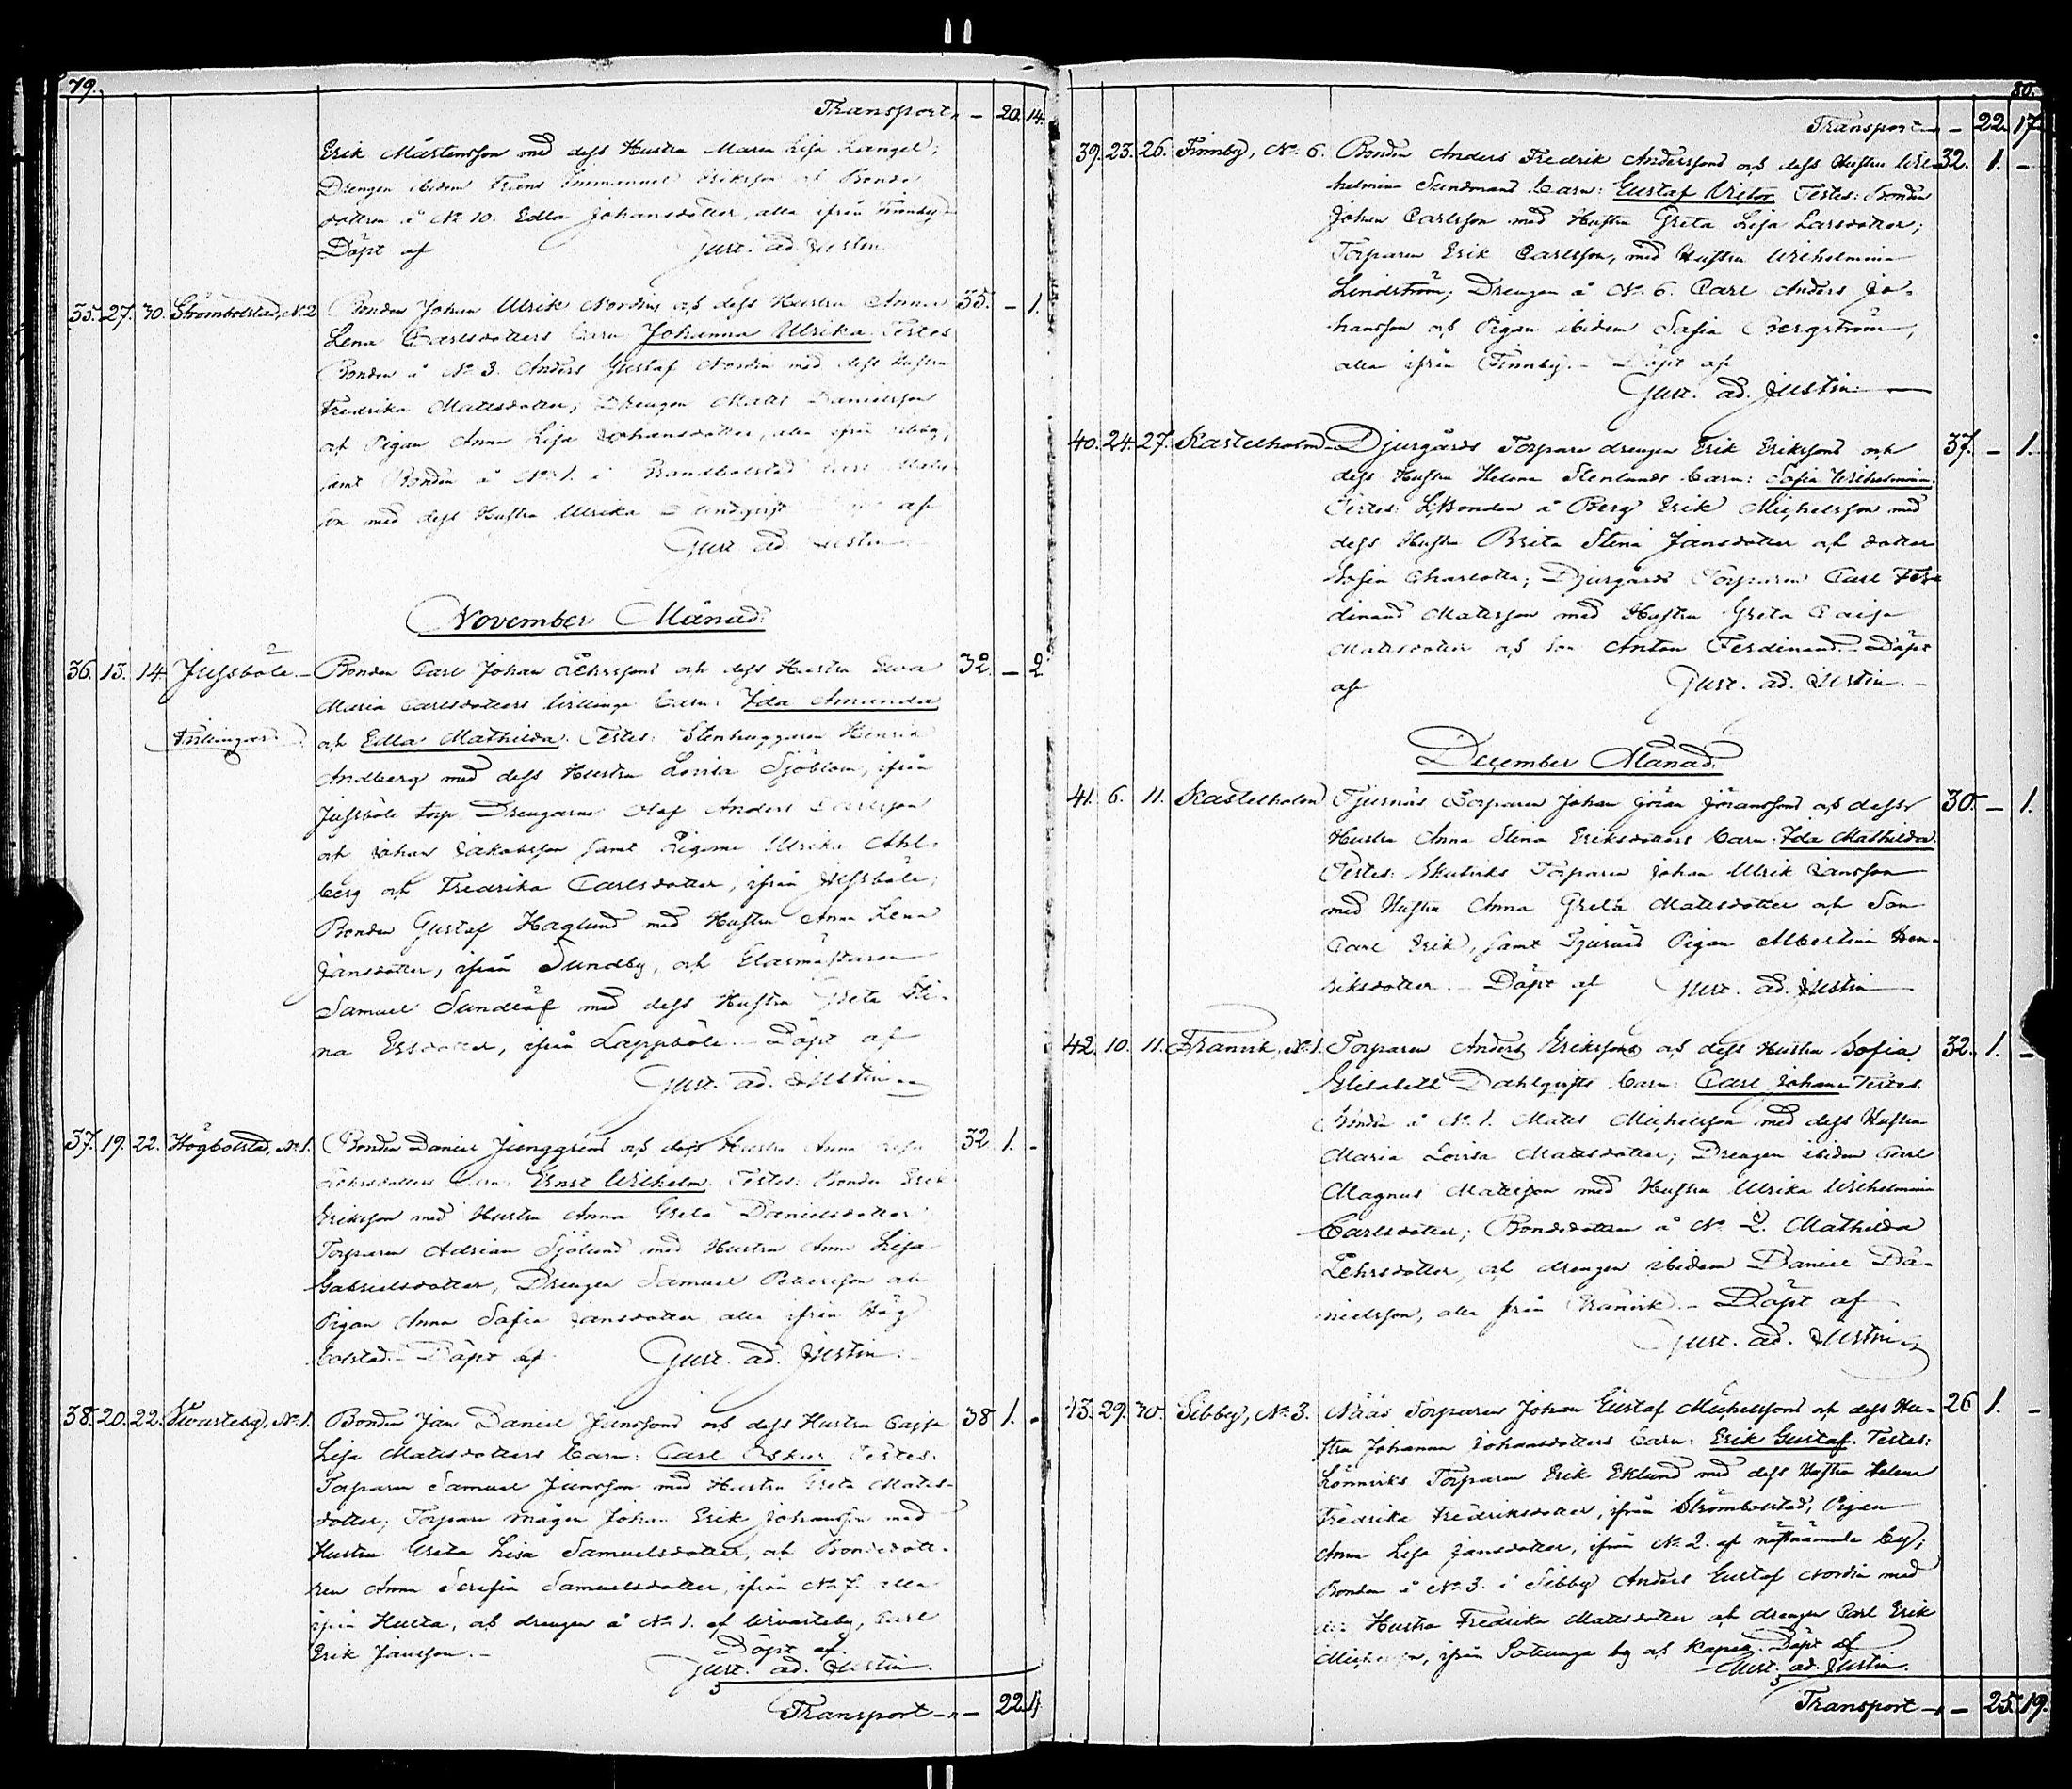 79.
Transport - 20. 14.
Erik Mårtensson med dess Hustru Maria Lisa Langel;
Drengen ibidem Frans Immanuel Eriksson och Bonde
dottren å No 10. Edla Johansdotter, alla ifrån Finnby
Döpt af Gust. Ad. Justin
35. 27. 30. Strömbolstad, No 2 Bonden Johan Ulrik Nordins och dess Hustru Anna 35. - 1.
Lena Carlsdotters barn Johanna Ulrika. Testes
Bonden å No 3. Anders Gustaf Nordin med dess Hustru
Fredrika Matsdotter; Drengen Mats Danielsson
och Pigan Anna Lisa Johansdotter, alla ifrån
samt Bonden å No 1. i Brandbolstad
son med dess Hustru Ulrika af
Gust. Ad. Justin
November Månad.
36. 13. 14. Jussböle. - Bonden Carl Johan Lehrssons och dess Hustru Eva 32. - 2
Maria Carlsdotters tvillinge barn: Ida Amanda
Tvillingar. och Edla Mathilda. Testes: Stenhuggaren Henrik
Andberg med dess Hustru Lovisa Sjöblom, ifrån
Jussböle torp Drengarne Olof Anders Carlsson
och Johan Jakobsson samt Pigorne Ulrika Ahl-
berg och Fredrika Carlsdotter, ifrån Jussböle;
Bonden Gustaf Haglund med Hustru Anna Lena
Jansdotter, ifrån Sundby, och Glasmästaren
Samuel Sundlöf med dess Hustru Greta Sti-
na Ersdotter, ifrån Lappböle. - Döpt af
Gust. Ad. Justin
37. 19. 22. Högbolstad, No 1. Bonden Daniel Ljunggrens och dess Hustru Anna Lisa 32 1. -
Lehrsdotters barn: Ernst Wilhelm. Testes: Bonden Erik
Eriksson med Hustru Anna Greta Danielsdotter
Torparen Adrian Sjölund med Hustru Anna Lisa
Gabrielsdotter, Drengen Samuel Pettersson och
Pigan Anna Sofia Jansdotter alla ifrån Hög
bolstad. - Döpt af Gust. Ad. Justin.
38. 20. 22. Svartsby, No 1. Bonden Jan Daniel Janssons och dess Hustru Cajsa 38 1. -
Lisa Matsdotters barn: Carl Oskar. Testes:
Torparen Samuel Jansson med Hustru Greta Mats-
dotter; Torpare mågen Johan Erik Johansson med
Hustru Greta Lisa Samuelsdotter, och Bondedott-
ren Anna Serafia Samuelsdotter, ifrån No 7. alla
ifrån Hulta, och drengen å No 1. af Svartsby, Carl
Erik Jansson. - Döpt af.
Gust. Ad. Justin.
Transport - - 22
80.
Transport - - 22. 17.
39. 23. 26. Finnby, No 6. Bonden Anders Fredrik Anderssons och dess Hustru Wil- 32. 1. -
helmina Sundmans barn: Gustaf Victor. Testes: Bonden
Johan Carlsson med Hustru Greta Lisa Larsdotter;
Torparen Erik Carlsson, med Hustru Wilhelmina
Lindström; Drengen å No 6. Carl Anders Jo-
hansson och Pigan ibidem Sofia Bergström,
alla ifrån Finnby. - Döpt af
Gust. Ad. Justin
40. 24. 27. Kastelholm - Djurgårds Torpare drengen Erik Erikssons och 37. - 1.
dess Hustru Helena Stenlunds barn: Sofia Wilhelmina.
Testes: Bonden å Berg Erik Michelsson med
dess Hustru Brita Stina Jansdotter och dotter
Sofia Charlotta; Djurgårds Torparen Carl Fer-
dinand Matsson med Hustru Greta Caisa
Matsdotter och son Anton Ferdinand. Döpt
af Gust. Ad. Justin. -
December Månad.
41. 6. 11. Kastelholm Tjurnäs Torparen Johan Göran Göranssons och dess 30. - 1.
Hustru Anna Stina Eriksdotters barn: Ida Mathilda.
Testes: Torparen Johan Ulrik Jansson
med Hustru Anna Greta Matsdotter och Son
Carl Erik, samt Tjurnäs Pigan Albertina Hen-
riksdotter. - Döpt af Gust. Ad. Justin
42. 10. 11. Framvik, No 1. Torparen Anders Erikssons och dess Hustru Sofia 32. 1. -
Elisabeth Dahlqvists barn: Carl Johan. Testes.
Bonden å No 1. Mats Michelsson med dess Hustru
Maria Lovisa Matsdotter; Drengen ibidem Carl
Magnus Matsson med Hustru Ulrika Wilhelmina
Carlsdotter; Bondedottren å No 2. Mathilda
Lehrsdotter, och drengen ibidem Daniel Da-
nielsson, alla från Framvik. - Döpt af
Gust. Ad. Justin
43. 29. 30. Sibby, No 3. Nääs Torparen Johan Gustaf Michelssons och dess Hu- 26 1. -
stru Johanna Johansdotters barn: Erik Gustaf. Testes:
Lönnviks Torparen Erik Eklund med dess Hustru Helena
Fredrika Fredriksdotter, ifrån Strömbolstad, Pigan
Anna Lisa Jansdotter, ifrån No 2. af nästnämnda by;
Bonden å No 3. i Sibby Anders Gustaf Nordin med
Hustru Fredrika Matsdotter och drengen Carl Erik
ifrån Saltunga by och Kapell. Döpt af
Gust. Ad. Justin.
Transport - - 25. 19.